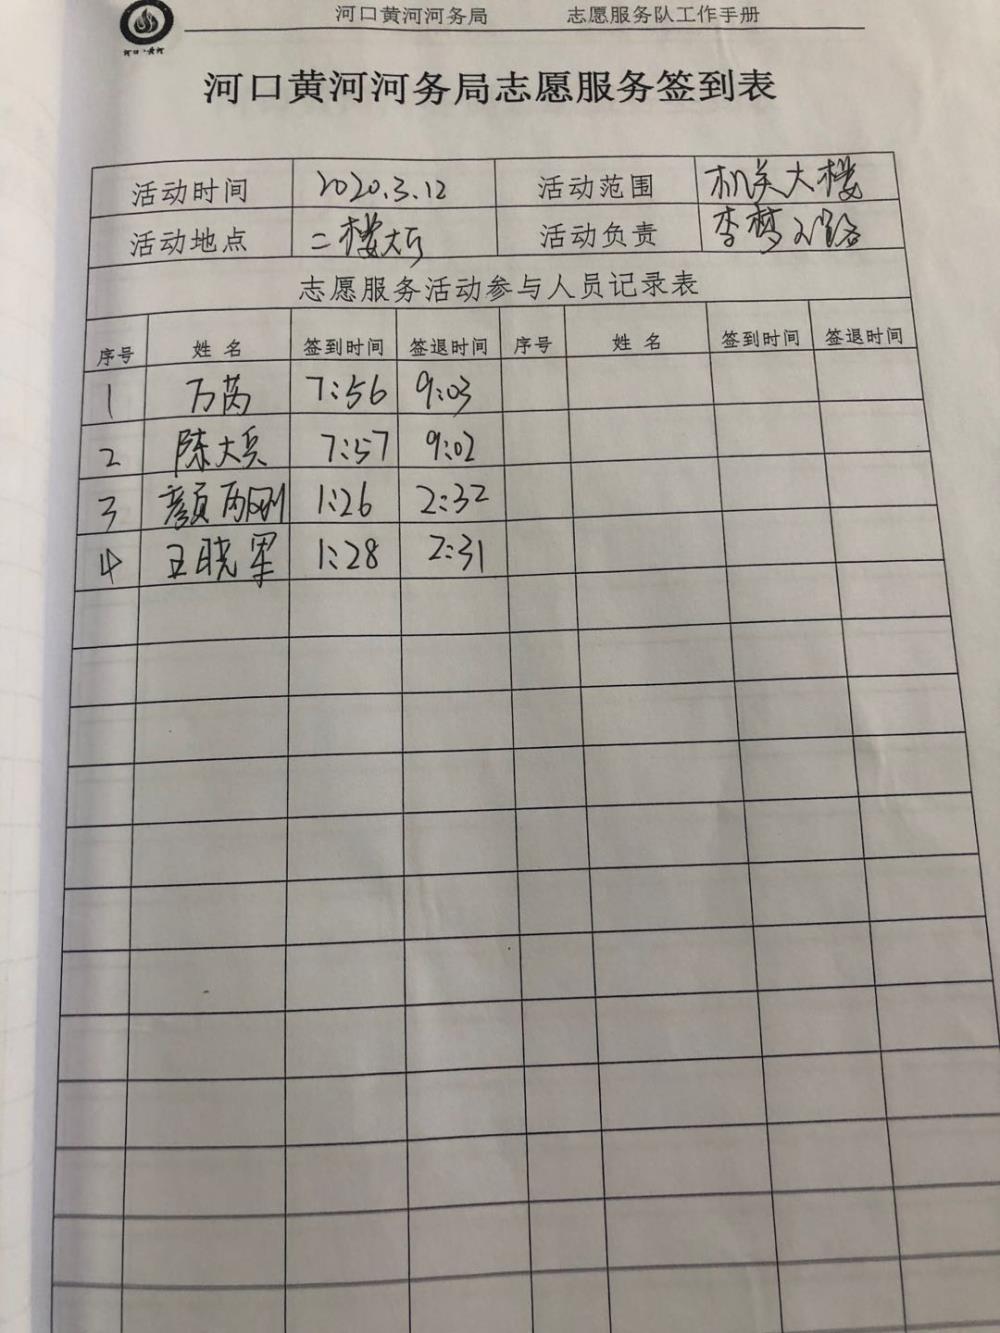 河口·黄河
河口黄河河务局 志愿服务队工作手册
河口黄河河务局志愿服务签到表
活动时间 2020.3.12 活动范围 机关大楼
活动地点 二楼大厅 活动负责 李梦
志愿服务活动参与人员记录表
序号 姓名 签到时间 签退时间 序号 姓名 签到时间 签退时间
1 万芮 7:56 9:03
2 陈大兵 7:57 9:02
3 颜丙刚 1:26 2:32
4 王晓军 1:28 2:31